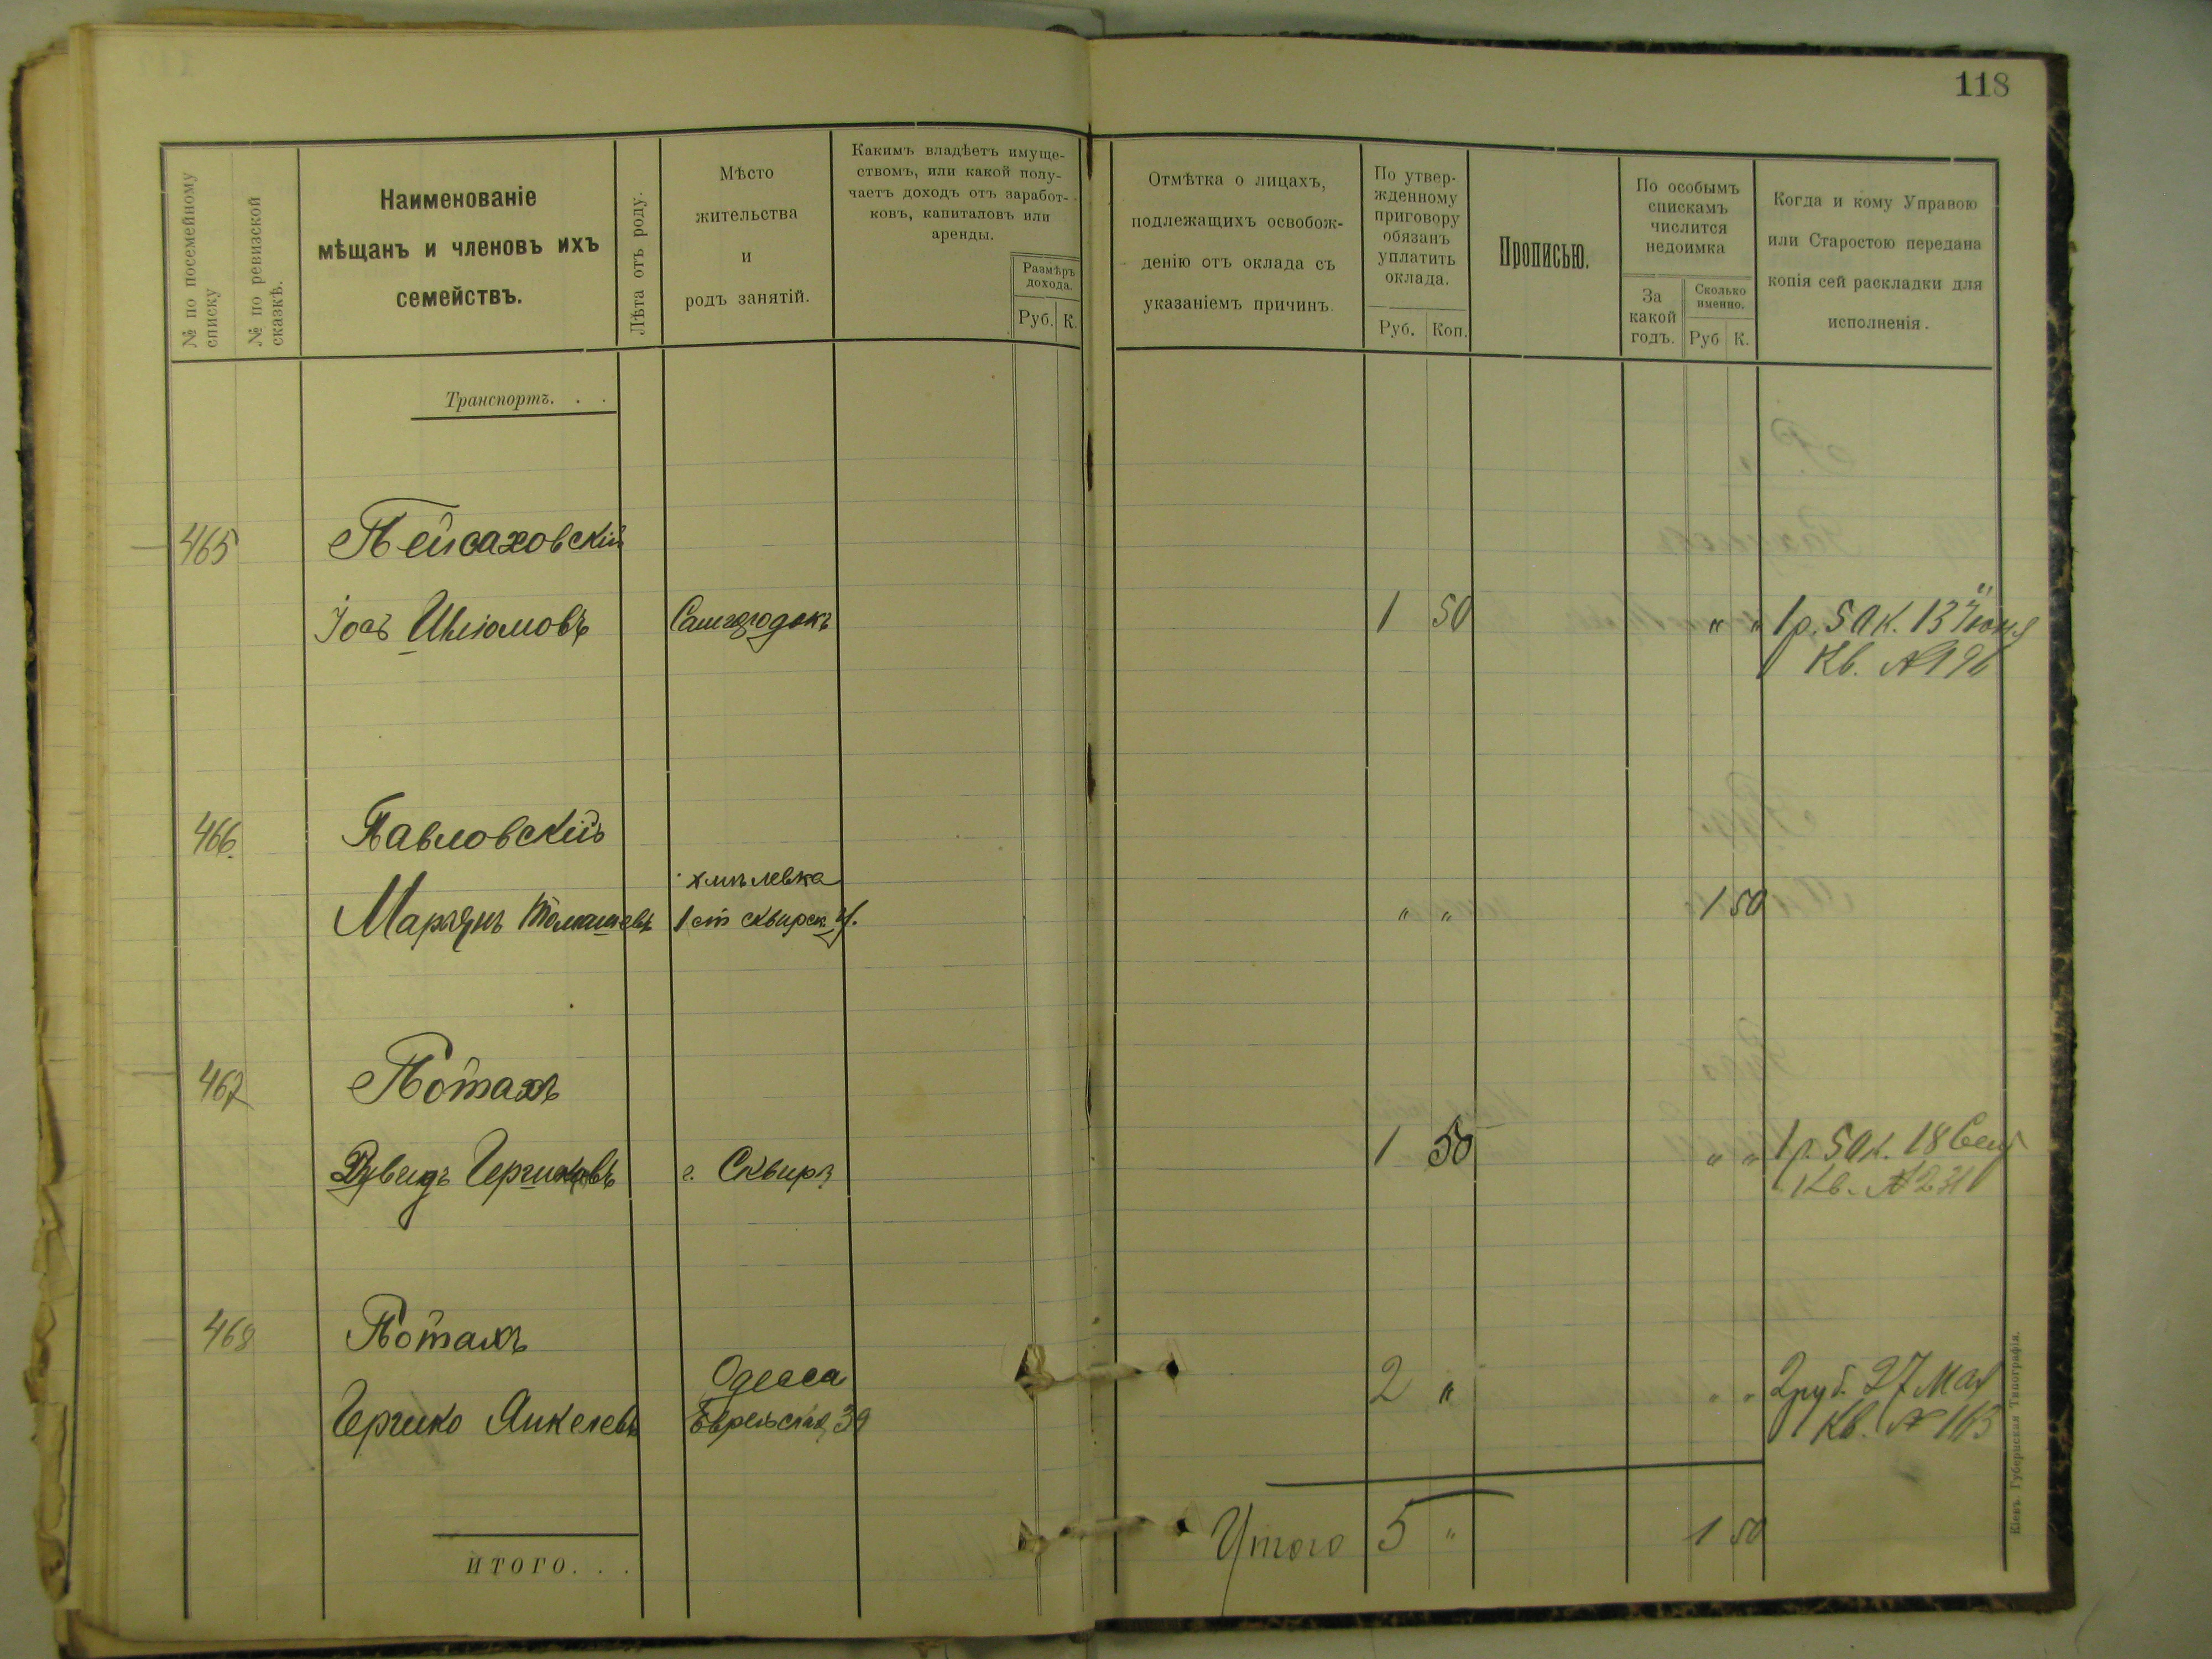 118
№ по посемейному
списку
№ по ревизской
сказкѣ.
Наименованіе
мѣщанъ и членовъ ихъ
семействъ.
Лѣта отъ роду.
Мѣсто
жительства
и
родъ занятій.
Какимъ владѣетъ имуще-
ствомъ, или какой полу-
чаетъ доходъ отъ заработ-
ковъ, капиталовъ или
аренды.
Размѣръ
дохода.
Руб. К.
Отмѣтка о лицахъ,
подлежащихъ освобож-
денію отъ оклада съ
указаніемъ причинъ.
По утвер-
жденному
приговору
обязанъ
уплатить
оклада.
Руб. Коп.
Прописью.
По особымъ
спискамъ
числится
недоимка
За
какой
годъ.
Сколько
именно.
Руб К.
Когда и кому Управою
или Старостою передана
копія сей раскладки для
исполненія.
Транспортъ. . .
465 Пейсаховскій
Іось Шлiомовъ Самгородокъ 1 50 " " 1 р. 50 к. 13 Іюня
Кв. № 196
466. Павловскій
Хмѣлевка
Марьянъ Томашевъ 1 ст Сквирск. у. " " 1 50
467 Потахъ
Дувидъ Гершковъ г. Сквира 1 50 " " 1 р. 50 к. 18 Сент
Кв. № 231
468 Потахъ
Одесса
Гершко Янкелевъ Еврейская, 39 2 " " " 2 руб. 27 Мая
Кв. № 163
ИТОГО. . .
Итого 5 " 1 50
Кіевъ. Губернская Типографія.